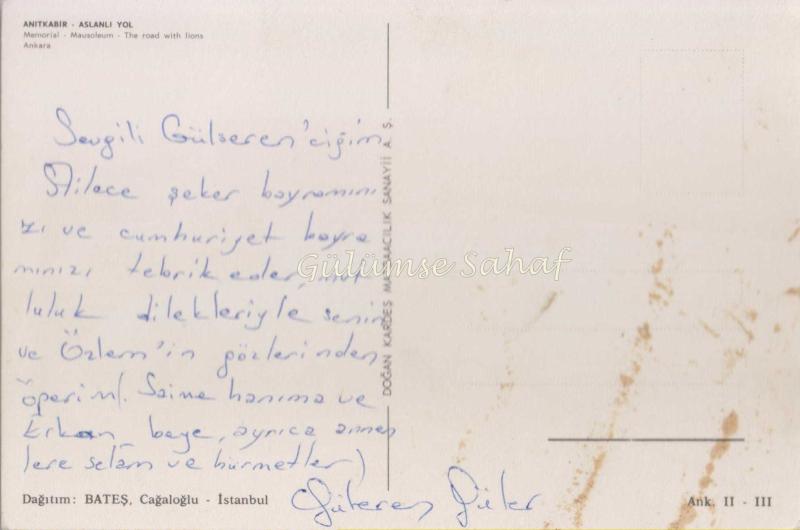 ANITKABİR - ASLANLI YOL
Memorial - Mausoleum - The road with lions
Ankara
Sevgili Gülseren'ciğim,
Ailece şeker bayramını
zı ve cumhuriyet bayra
mınızı tebrik eder, mut
luluk dilekleriyle senin
ve Özlem'in gözlerinden
öperim (. Saime hanıma ve
Erkan beye, ayrıca anne
lere selâm ve hürmetler)
Gülseren Güler
DOĞAN KARDEŞ MATBAACILIK SANAYİİ A. Ş.
Gülümse Sahaf
Dağıtım: BATEŞ, Cağaloğlu - İstanbul
Ank. II - III